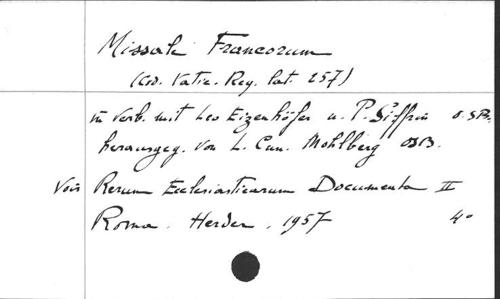 Missale Francorum
(Cod. Vatic. Reg. lat. 257)
in Verb. mit Leo Eizenhöfer u. P. Siffrin O.S.B.
herausgeg. von L. Cun. Mohlberg OSB.
Voir Rerum Ecclesiasticarum Documenta II
Roma. Herder, 1957 4°